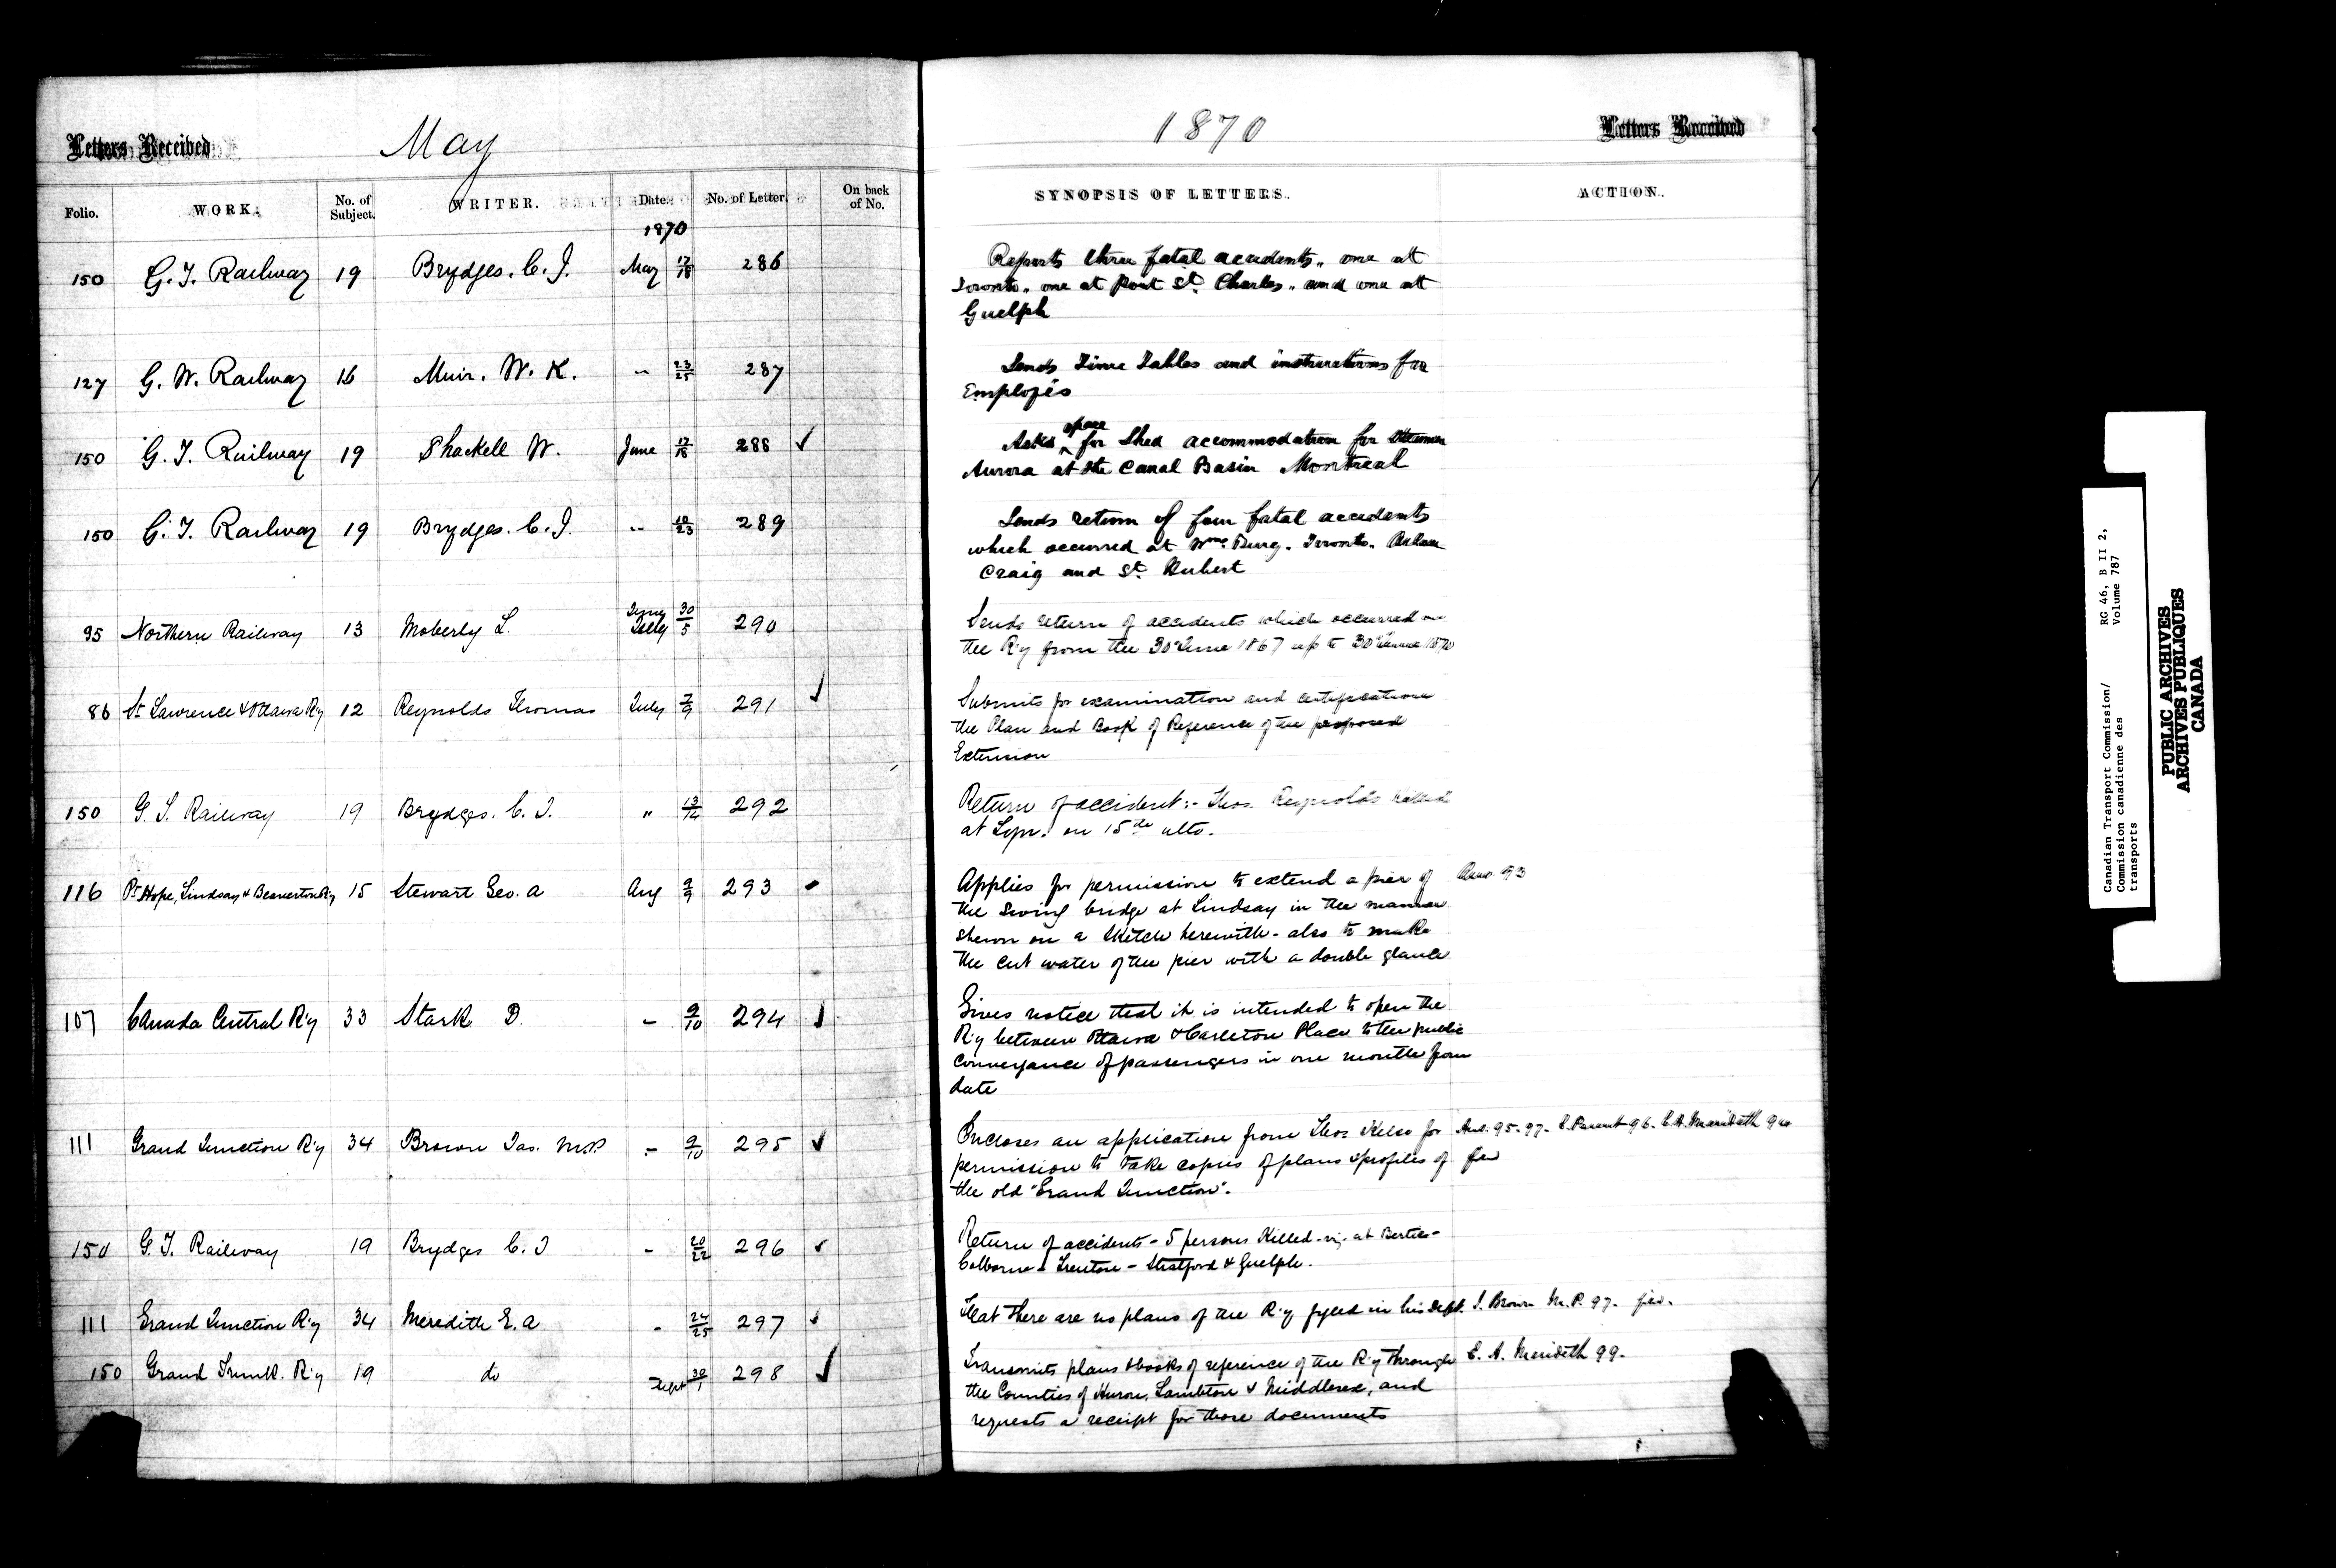 Letters Received
May
1870
Letters Received
Folio. WORK. No. of Subject. WRITER. Date. No. of Letter. On back of No. SYNOPSIS OF LETTERS. ACTION.
1870
150 G. T. Railway 19 Brydges. C. J. May 17/18 286
Reports three fatal accidents, one at
Toronto, one at Point St. Charles, and one at
Guelph
127 G. W. Railway 16 Muir. W. K. " 23/25 287
Sends Time Tables and instructions for
Employés
150 G. T. Railway 19 Shackell W. June 17/18 288 ✓
Asks space for Shed accommodation for Steamer
Aurora at the Canal Basin Montreal
150 G. T. Railway 19 Brydges. C. J. " 289
Sends return of four fatal accidents
which occurred at Wms Burg. Toronto. Ailsa
Craig and St. Hubert
95 Northern Railway 13 Moberly L. June 30/July 5 290
Sends return of accidents which occurred on
the Ry from the 30th June 1867 up to 30th June 1870
86 St Lawrence & Ottawa Ry 12 Reynolds Thomas July 7/9 291 ✓
Submits for examination and certification
the Plan and Book of Reference of the proposed
Extension
150 G. T. Railway 19 Brydges. C. J. " 13/14 292
Return of accident:- Thos. Reynolds killed
at on 15th ulto.
116 Pt Hope, Lindsay & Beaverton Ry 15 Stewart Geo. A Aug 293
Applies for permission to extend a pier of Ansr. 93
the Swing bridge at Lindsay in the manner
shewn on a sketch herewith - also to make
the cut water of the pier with a double
107 Canada Central Ry 33 Stark D. " 9/10 294 ✓
Gives notice that it is intended to open the
Ry between Ottawa & Carleton Place to the public
conveyance of passengers in one month from
date
111 Grand Junction Ry 34 Brown Jas. M.P. " 9/10 295 ✓
Encloses an application from Thos Kelso for Ansr. 95. 97. E. Parent 96. E. A. Meredith
permission to take copies of plans & profiles of
the old "Grand Junction".
150 G. T. Railway 19 Brydges C. J " 20/22 296 ✓
Return of accidents - 5 persons Killed - viz at Berlin -
Colborne - Trenton - Stratford & Guelph.
111 Grand Junction Ry 34 Meredith E. A " 24/25 297 ✓
That there are no plans of the Ry fyled in his Dept. J. Brown M.P. 97.
150 Grand Trunk. Ry 19 do Sept 30/1 298 ✓
Transmits plans & books of reference of the Ry through E. A. Meredith 99.
the Counties of Huron, Lambton & Middlesex, and
requests a receipt for those documents
Canadian Transport Commission/ RG 46, B II 2,
Commission canadienne des Volume 787
transports
PUBLIC ARCHIVES
ARCHIVES PUBLIQUES
CANADA